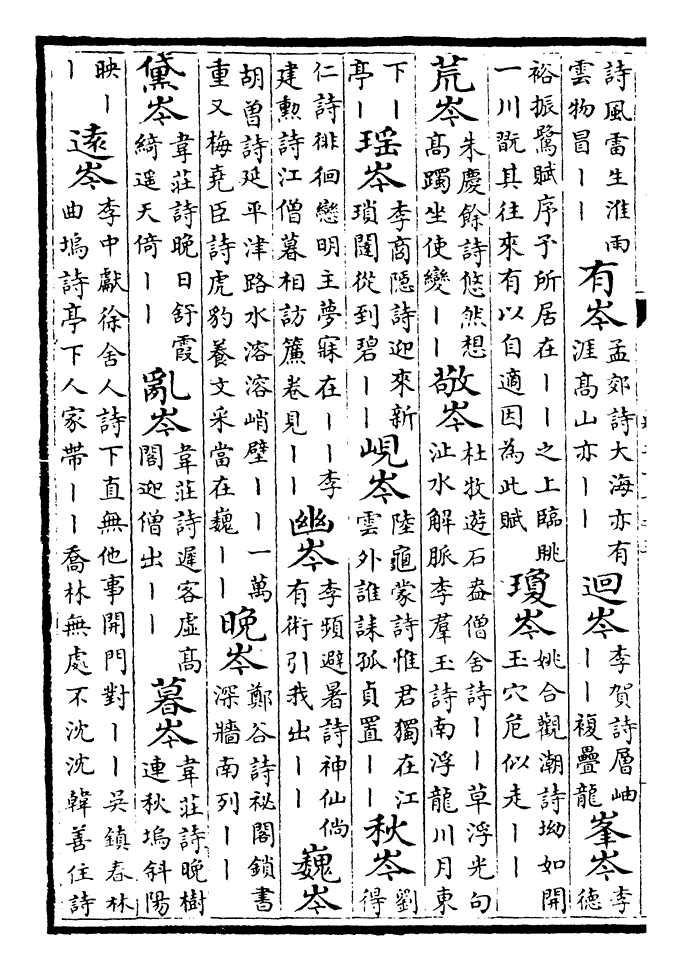 詩風雷生淮雨雲物冒丨丨有岑孟郊詩大海亦有涯髙山亦丨丨迴岑李賀詩層岫丨丨複疊龍峯岑李德
裕振鷺賦序予所居在丨丨之上臨眺一川旣其往來有以自適因為此賦瓊岑姚合觀潮詩坳如開玉穴危似走丨丨
荒岑朱慶餘詩悠然想髙躅坐使變丨丨敬岑杜牧遊石盎僧舍詩丨丨草浮光句沚水解脈李羣玉詩南浮龍川月東
下丨亭丨瑶岑李商隠詩迎來新瑣闥從到碧丨丨峴岑陸龜蒙詩惟君獨在江雲外誰誄孤貞置丨丨秋岑劉得
仁詩徘徊戀明主夢寐在丨丨李建勲詩江僧暮相訪簾卷見丨丨幽岑李頻避暑詩神仙倘有術引我出丨丨巍岑
胡曽詩延平津路水溶溶峭壁丨丨一萬重又梅堯臣詩虎豹養文采當在巍丨丨晚岑鄭谷詩秘閣鎖書深牆南列丨丨
黛岑韋莊詩晚日舒霞綺遥天倚丨丨亂岑韋莊詩遲客虚髙閣迎僧出丨丨暮岑韋莊詩晚樹連秋塢斜陽
映丨丨遠岑李中獻徐舍人詩下直無他事開門對丨丨吳鎮春林曲塢詩亭下人家帶丨丨喬林無處不沈沈韓善住詩